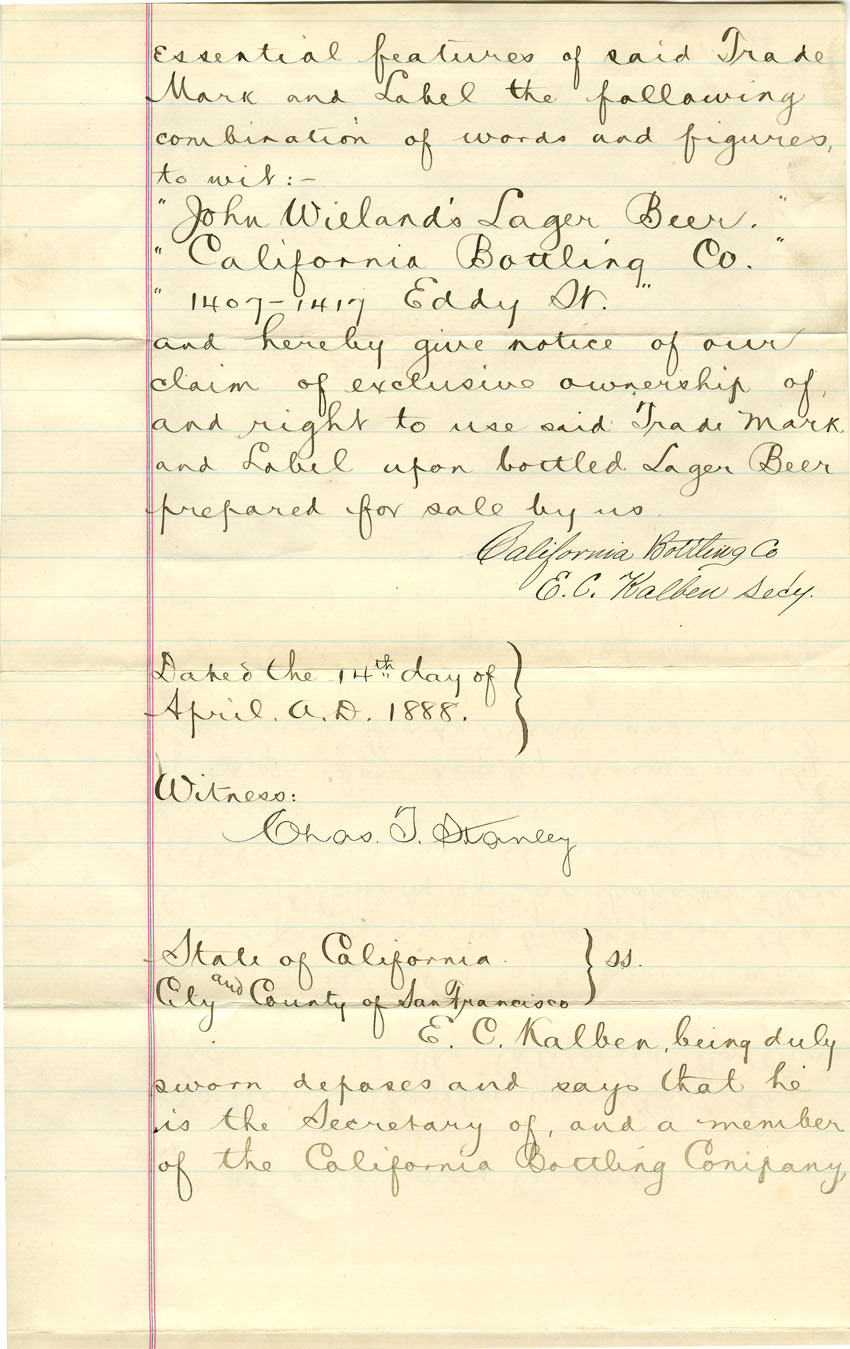 essential features of said Trade
Mark and Label the following
combination of words and figures,
to wit:-
"John Wieland's Lager Beer."
"California Bottling Co."
"1407-1417 Eddy St."
and hereby give notice of our
claim of exclusive ownership of,
and right to use said Trade Mark
and Label upon bottled Lager Beer
prepared for sale by us
California Bottling Co
E. C. Kalben Secy.
Dated the 14th day of
April. A.D. 1888.
Witness:
Chas. T. Stanley
State of California.
City and County of San Francisco } ss.
E. C. Kalben, being duly
sworn deposes and says that he
is the Secretary of, and a member
of the California Bottling Company